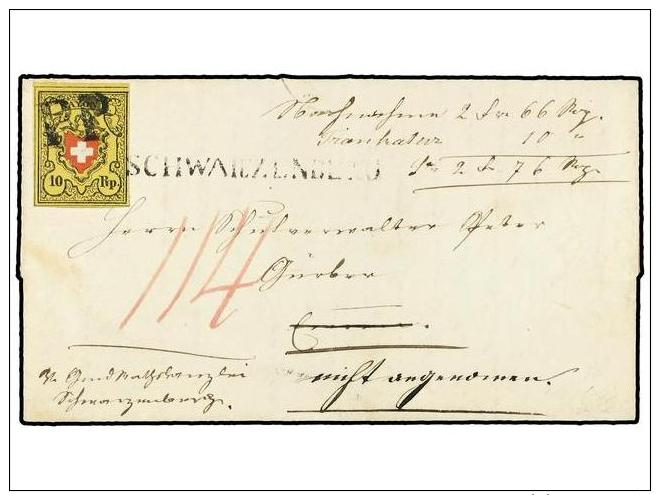 PP
10 Rp.
SCHWARZENBERG
Nachnahme 2 Fr 66 Rp.
Frankatur 10 "
2 Fr. 76 Rp.
Herrn Schulverwalter Peter
Gürber
nicht angenomen.
114
Schwarzenberg.